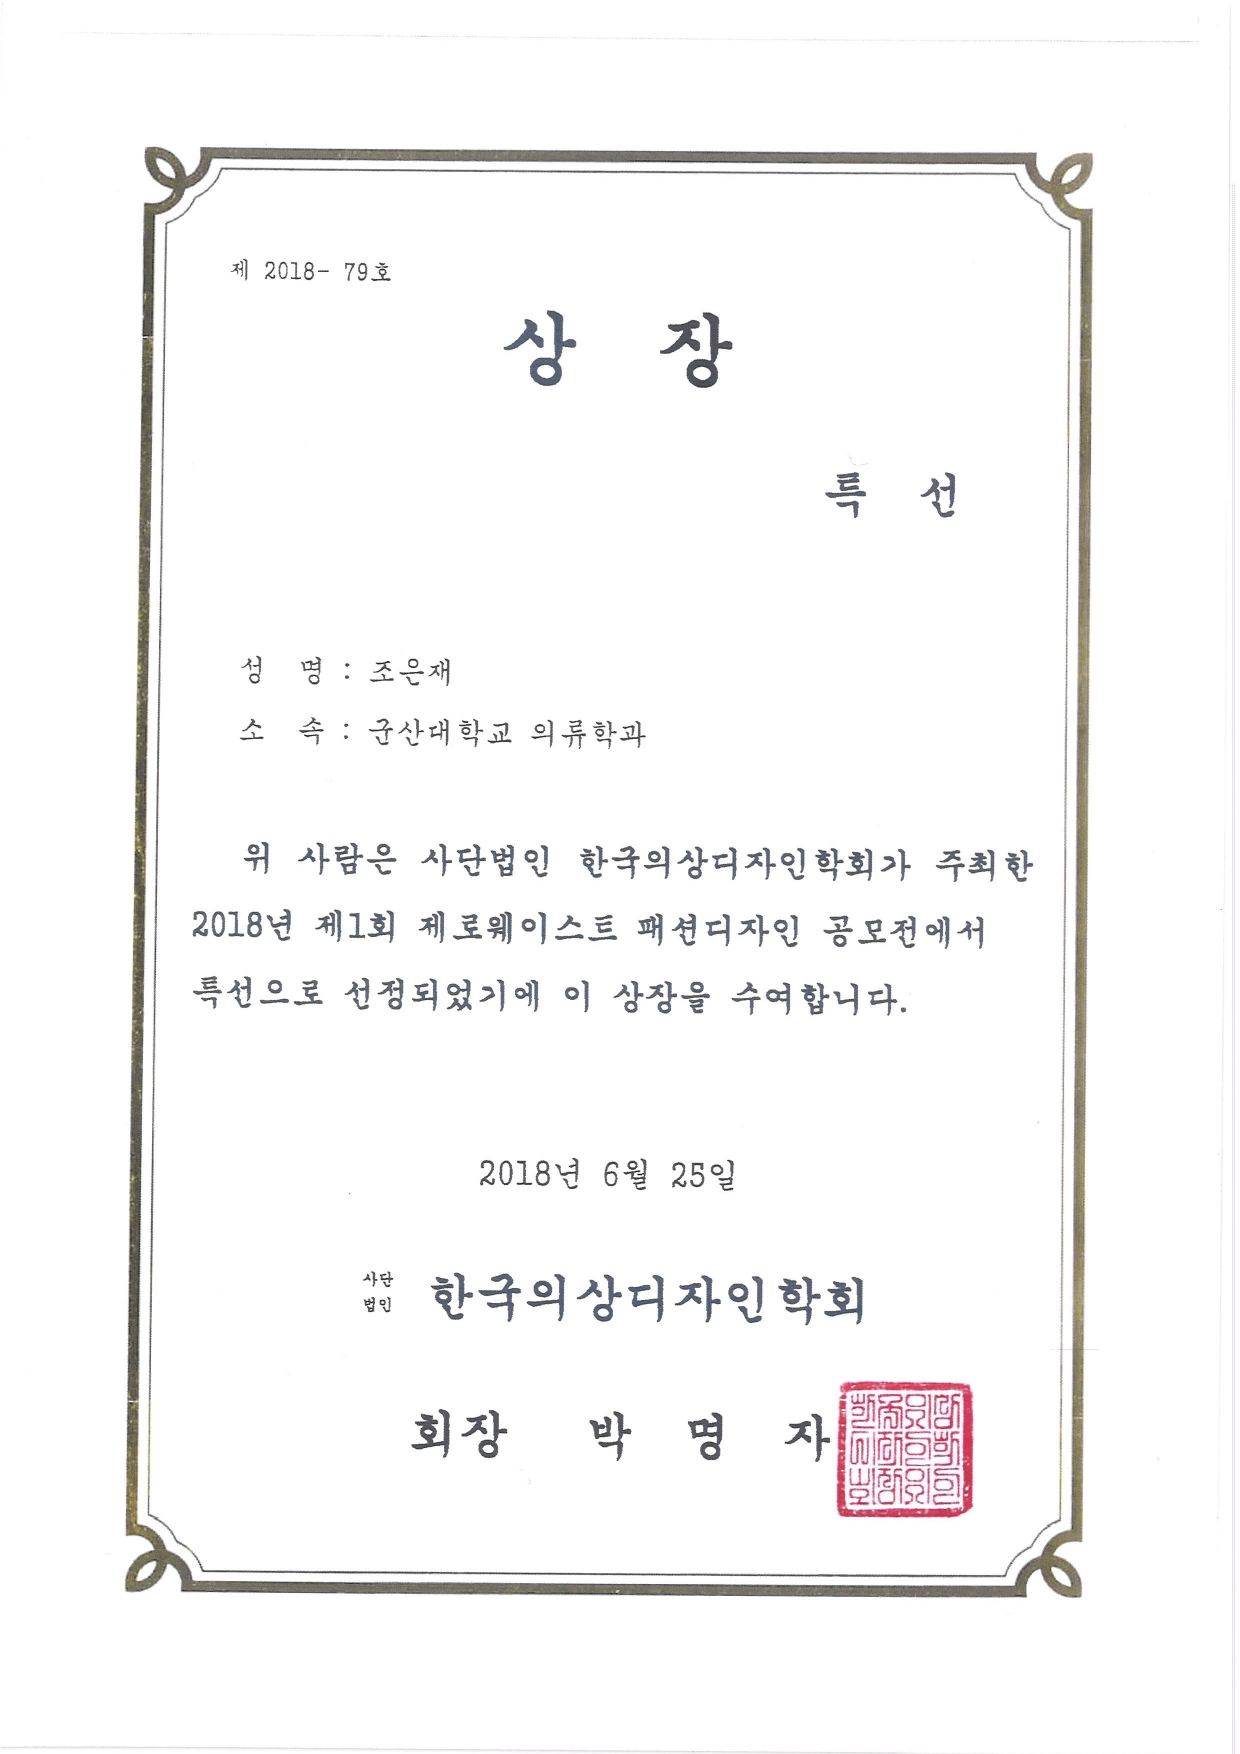 제 2018- 79호
상 장
특 선
성 명 : 조은재
소 속 : 군산대학교 의류학과
위 사람은 사단법인 한국의상디자인학회가 주최한
2018년 제1회 제로웨이스트 패션디자인 공모전에서
특선으로 선정되었기에 이 상장을 수여합니다.
2018년 6월 25일
사단
법인 한국의상디자인학회
회장 박 명 자